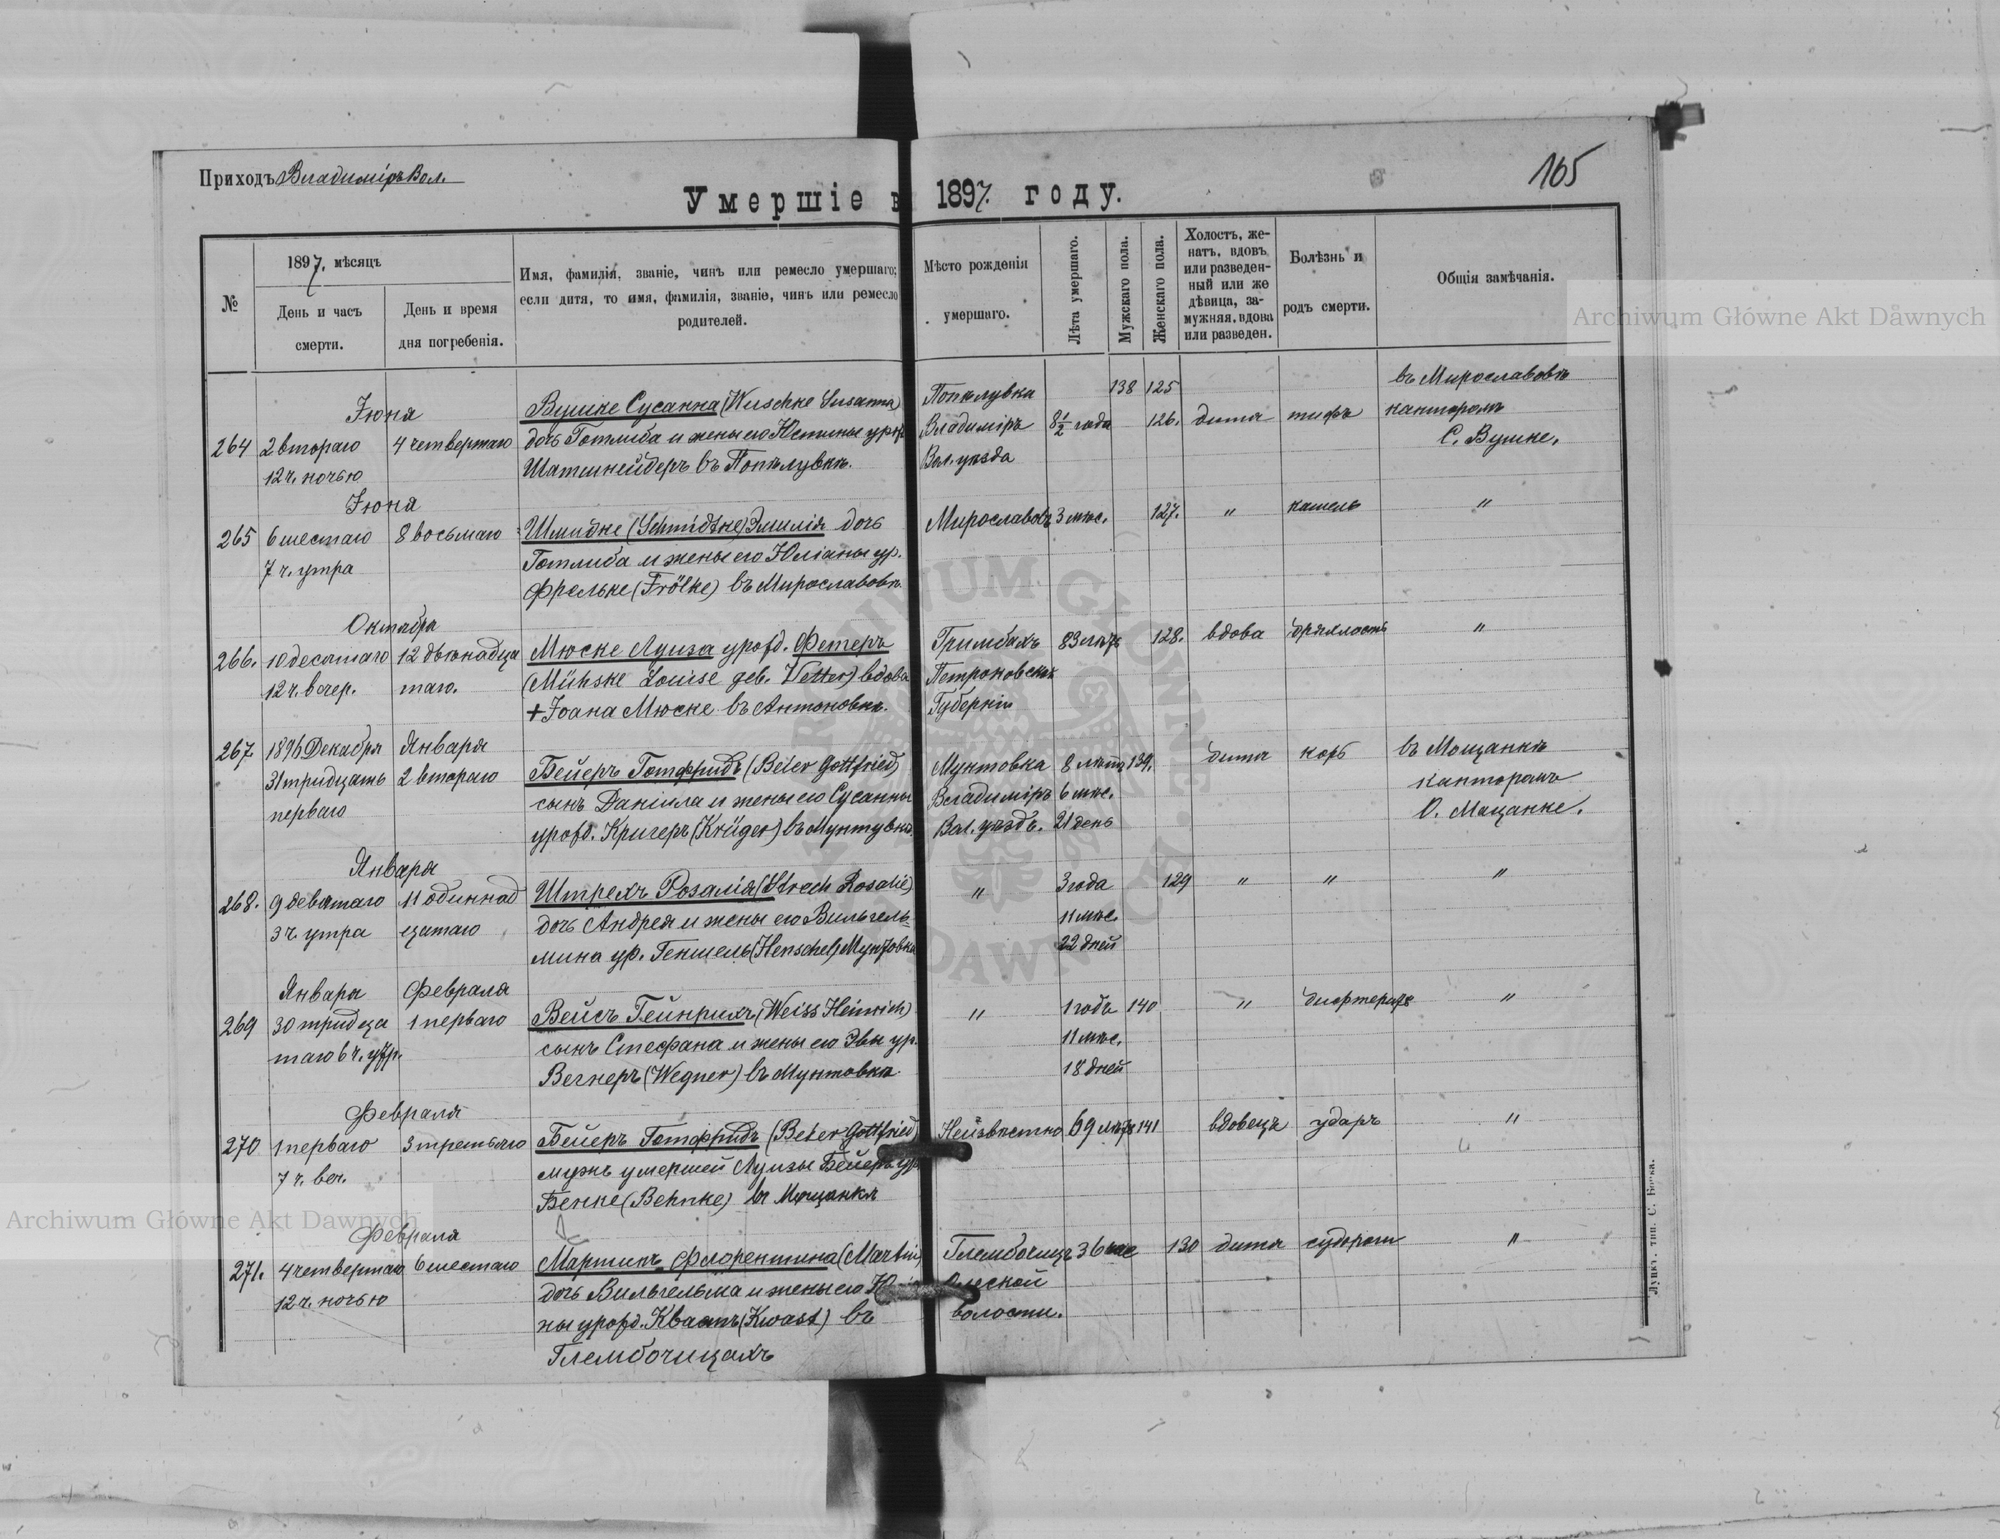 Приходъ Владиміръ Вол.
165
Умершіе в 1897. году.
№
1897. мѣсяцъ
День и часъ смерти.
День и время дня погребенія.
Имя, фамилія, званіе, чинъ или ремесло умершаго;
если дитя, то имя, фамилія, званіе, чинъ или ремесло
родителей.
Мѣсто рожденія
умершаго.
Лѣта умершаго.
Мужскаго пола.
Женскаго пола.
Холостъ, же-
натъ, вдовъ
или разведен-
ный или же
дѣвица, за-
мужняя, вдова
или разведен.
Болѣзнь и
родъ смерти.
Общія замѣчанія.
138 125
въ Мирославовкѣ
Іюня Вушке Сусанна (Wuschke Susanna) Попелувка
264 2 втораго 4 четвертаго дочь Готлиба и жены его Юстины урож. Владиміръ 8½ года 126. дитя тифъ канторомъ
С. Вушке.
12 ч. ночью Шатшнейдеръ въ Попѣлувкѣ. Вол. уѣзда
Іюня
265 6 шестаго 8 восьмаго Шмидтке (Schmidtke) Эмилія дочь Мирославовъ 3 мѣс. 127. " кашель "
7 ч. утра Готлиба и жены его Юліаны ур.
Фрельке (Frölke) въ Мирославовкѣ
Октября
266. 10 десятаго 12 двѣнадца Мюске Луиза урожд. Фетеръ Гримбахъ 83 лѣтъ 128. вдова дряхлость "
12 ч. вечер. таго. (Mühske Louise geb. Vetter) вдова Петроковской
+ Іоана Мюске въ Антоновкѣ. Губерніи
267. 1896 Декабря Января
31 тридцать 2 втораго Бейеръ Готфридъ (Beier Gottfried) Мунтовка 8 лѣтъ 139. дитя корь въ Мощанкѣ
перваго сынъ Даніила и жены его Сусанны Владиміръ 6 мѣс. канторомъ
урожд. Кригеръ (Krüger) въ Мунтувкѣ Вол. уѣздъ. 21 день О. Мацанке.
Января
268. 9 девятаго 11 одиннад Штрехъ Розалія (Strech Rosalie) " 3 года 129 " " "
3 ч утра цатаго дочь Андрея и жены его Вильгель- 11 мѣс.
мина ур. Геншель (Henschel) Мунтовка 22 дней
Января Февраля
269 30 тридца 1 перваго Вейсъ Гейнрихъ (Weiss Heinrich) " 1 годъ 140 " дифтеритъ "
таго 6 ч. утр. сынъ Стефана и жены его Эвы ур. 11 мѣс.
Вегнеръ (Wegner) въ Мунтовкѣ 18 дней
Февраля
270 1 перваго 3 третьяго Бейеръ Готфридъ (Beier Gottfried) Неизвѣстно 69 лѣтъ 141 вдовецъ ударъ "
7 ч. веч. мужъ умершей Луизы Бейеръ ур.
Бенке (Behnke) въ Мощанкѣ
Февраля
271. 4 четвертаго 6 шестаго Мартинъ Флорентина (Martin) Глембочицъ 36 час 130 дитя судороги "
12 ч. ночью дочь Вильгельма и жены его
ны урожд. Квастъ (Kwast) въ волости.
Глембочицахъ
Луцкъ, тип. С. Бонка.
Archiwum Główne Akt Dawnych
Archiwum Główne Akt Dawnych
ARCHIWUM GŁÓWNE AKT DAWNYCH